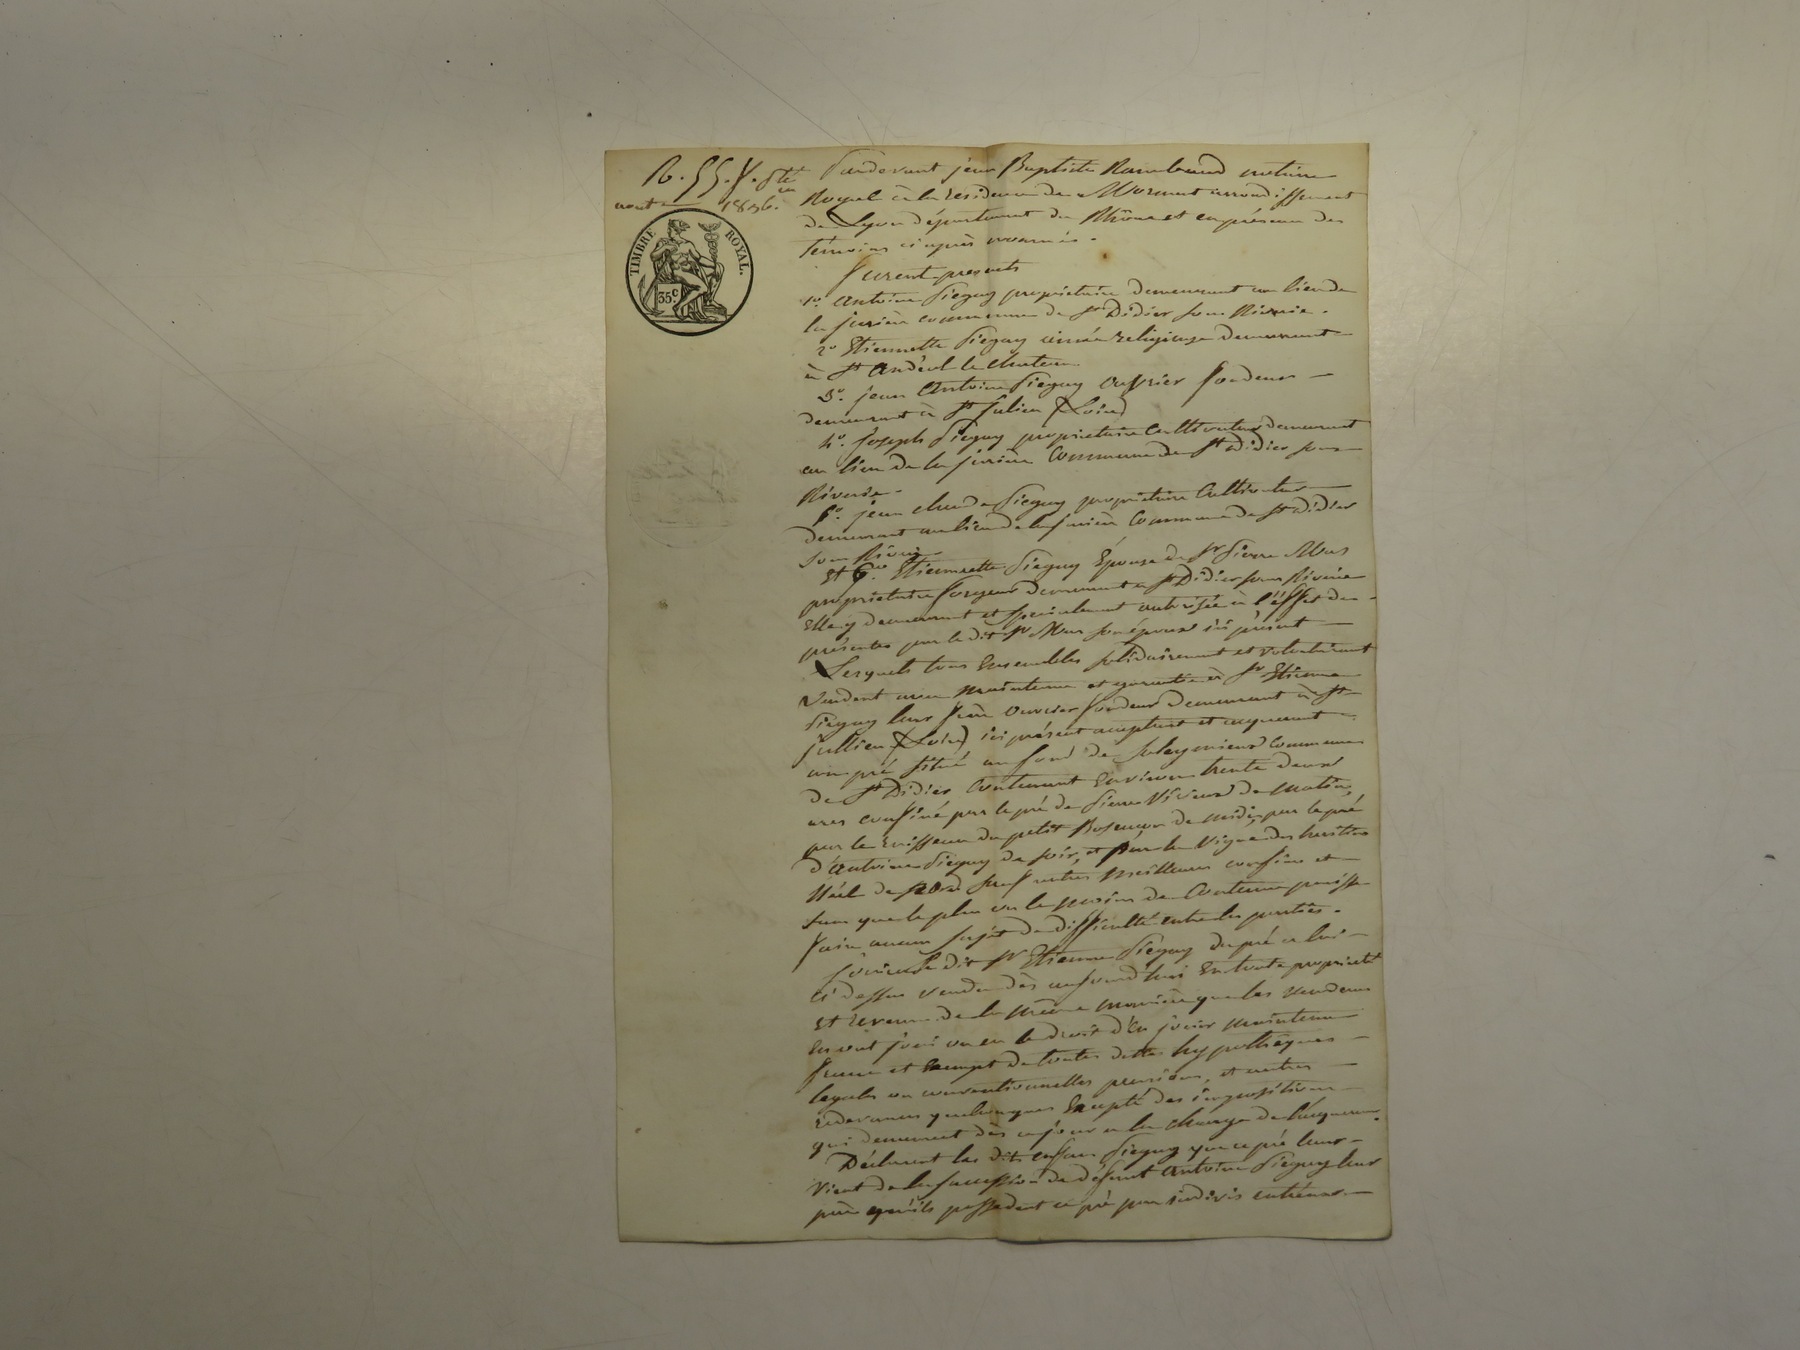 1836.
TIMBRE ROYAL.
35c
Pardevant jean Baptiste Rambaud notaire
Royal à la résidence de Mornant arrondissement
de Lyon département du Rhône et en présence des
témoins ci après nommés.
furent présents
1o. Antoine Piegay propriétaire demeurant au lieu de
la jurière commune de St Didier sous Riverie.
2o Etiennette Piegay ainée religieuse demeurant
à St Andéol le château
3o. jean Antoine Piegay ouvrier fondeur
demeurant à St Julien (Loire)
4o. Joseph Piegay propriétaire Cultivateur demeurant
au lieu de la jurière Commune de St Didier sous
Riverie.
5o. jean claude Piegay propriétaire Cultivateur
demeurant au lieu de la jurière Commune de St Didier
sous Riverie.
Et 6o. Etiennette Piegay Epouse de Sr Pierre Mas
propriétaire forgeur demeurant à St Didier sous Riverie
Elle y demeurant et spécialement autorisée à l'effet des
présentes par le dit Sr Mas son époux ici présent
Lesquels tous Ensembles solidairement et volontairement
Vendent avec maintenue et garantie à Sr Etienne
Piegay leur frère ouvrier fondeur demeurant à St
jullien (Loire) ici présent acceptant et acquerant
un pré situé au fond de commune
de St Didier, Contenant Environ trente deux
ares confiné par le pré de Pierre Vivieux de matin,
par le ruisseau du petit Bosençon de midi, par le pré
d'Antoine Piegay de soir, et par la Vigne des héritiers
de Nord sauf autres meilleurs confins et
sans que le plus ou le moins de Contenue puisse
faire aucun sujet de difficulté entre les parties.
Jouira le dit Sr Etienne Piegay du pré a lui
ci dessus vendu dès aujourd'hui En toute propriété
Et revenu de la même manière que les vendeurs
En ont joui ou eu le droit d'En jouir maintenu
franc et Exempt de toutes dettes hypothèques
legales ou conventionnelles pensions, et autres
redevances quelconques Excepté des impositions
qui demeurent dès ce jour a la charge de l'acquereur.
Déclarent les dits enfans Piegay que ce pré leur
Vient de la succession de défunt Antoine Piegay leur
père qu'ils possedent ce pré par indivis entr'eux